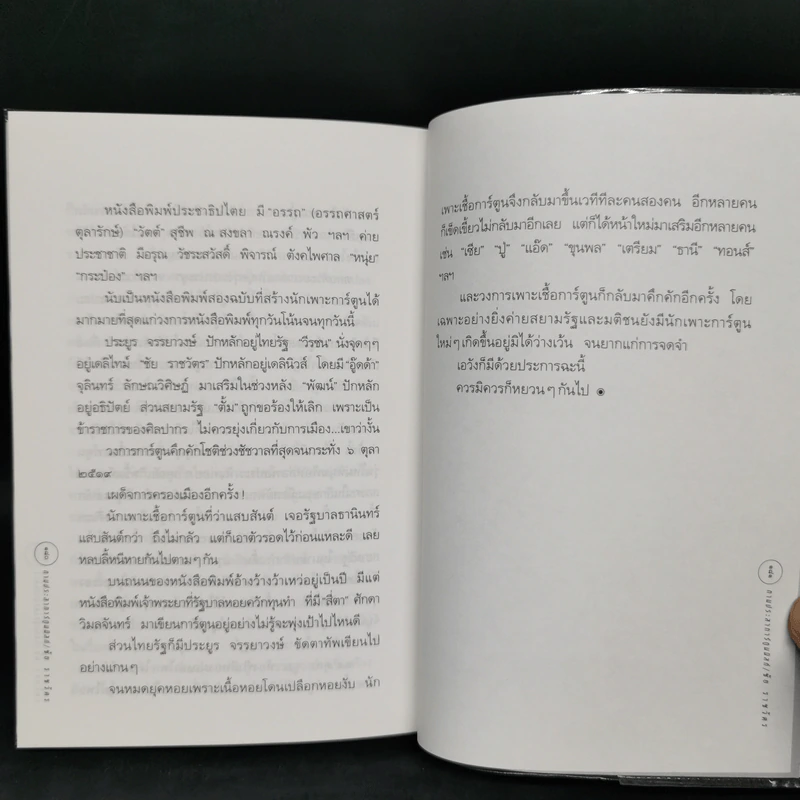 หนังสือพิมพ์ประชาธิปไตย มี “อรรถ” (อรรถศาสตร์
ตุลารักษ์) “วัตต์” สุชีพ ณ สงขลา ณรงค์ พัว ฯลฯ ค่าย
ประชาชาติ มีอรุณ วัชระสวัสดิ์ พิจารณ์ ตังคไพศาล “หนุ่ย”
“กระป๋อง” ฯลฯ
นับเป็นหนังสือพิมพ์สองฉบับที่สร้างนักเพาะการ์ตูนได้
มากมายที่สุดแก่วงการหนังสือพิมพ์ทุกวันโน้นจนทุกวันนี้
ประยูร จรรยาวงษ์ ปักหลักอยู่ไทยรัฐ “วีรชน” นั่งจุดๆๆ
อยู่เดลิไทม์ “ชัย ราชวัตร” ปักหลักอยู่เดลินิวส์ โดยมี “อู๊ดด้า”
จุลินทร์ ลักษณวิศิษฏ์ มาเสริมในช่วงหลัง “พัฒน์” ปักหลัก
อยู่อธิปัตย์ ส่วนสยามรัฐ “ตั้ม” ถูกขอร้องให้เลิก เพราะเป็น
ข้าราชการของศิลปากร ไม่ควรยุ่งเกี่ยวกับการเมือง...เขาว่างั้น
วงการการ์ตูนคึกคักโชติช่วงชัชวาลที่สุดจนกระทั่ง ๖ ตุลา
๒๕๑๙
เผด็จการครองเมืองอีกครั้ง !
นักเพาะเชื้อการ์ตูนที่ว่าแสบสันต์ เจอรัฐบาลธานินทร์
แสบสันต์กว่า ถึงไม่กลัว แต่ก็เอาตัวรอดไว้ก่อนแหละดี เลย
หลบลี้หนีหายกันไปตามๆ กัน
บนถนนของหนังสือพิมพ์อ้างว้างว้าเหว่อยู่เป็นปี มีแต่
หนังสือพิมพ์เจ้าพระยาที่รัฐบาลหอยควักทุนทำ ที่มี “สี่ตา” ศักดา
วิมลจันทร์ มาเขียนการ์ตูนอยู่อย่างไม่รู้จะพุ่งเป้าไปไหนดี
ส่วนไทยรัฐก็มีประยูร จรรยาวงษ์ ขัดตาทัพเขียนไป
อย่างแกนๆ
จนหมดยุคหอยเพราะเนื้อหอยโดนเปลือกหอยงับ นัก
เพาะเชื้อการ์ตูนจึงกลับมาขึ้นเวทีทีละคนสองคน อีกหลายคน
ก็เข็ดเขี้ยวไม่กลับมาอีกเลย แต่ก็ได้หน้าใหม่มาเสริมอีกหลายคน
เช่น “เซีย” “ปู่” “แอ๊ด” “ขุนพล” “เตรียม” “ธานี” “ทอนส์”
ฯลฯ
และวงการเพาะเชื้อการ์ตูนก็กลับมาคึกคักอีกครั้ง โดย
เฉพาะอย่างยิ่งค่ายสยามรัฐและมติชนยังมีนักเพาะการ์ตูน
ใหม่ๆ เกิดขึ้นอยู่มิได้ว่างเว้น จนยากแก่การจดจำ
เอวังก็มีด้วยประการฉะนี้
ควรมิควรก็หยวนๆ กันไป